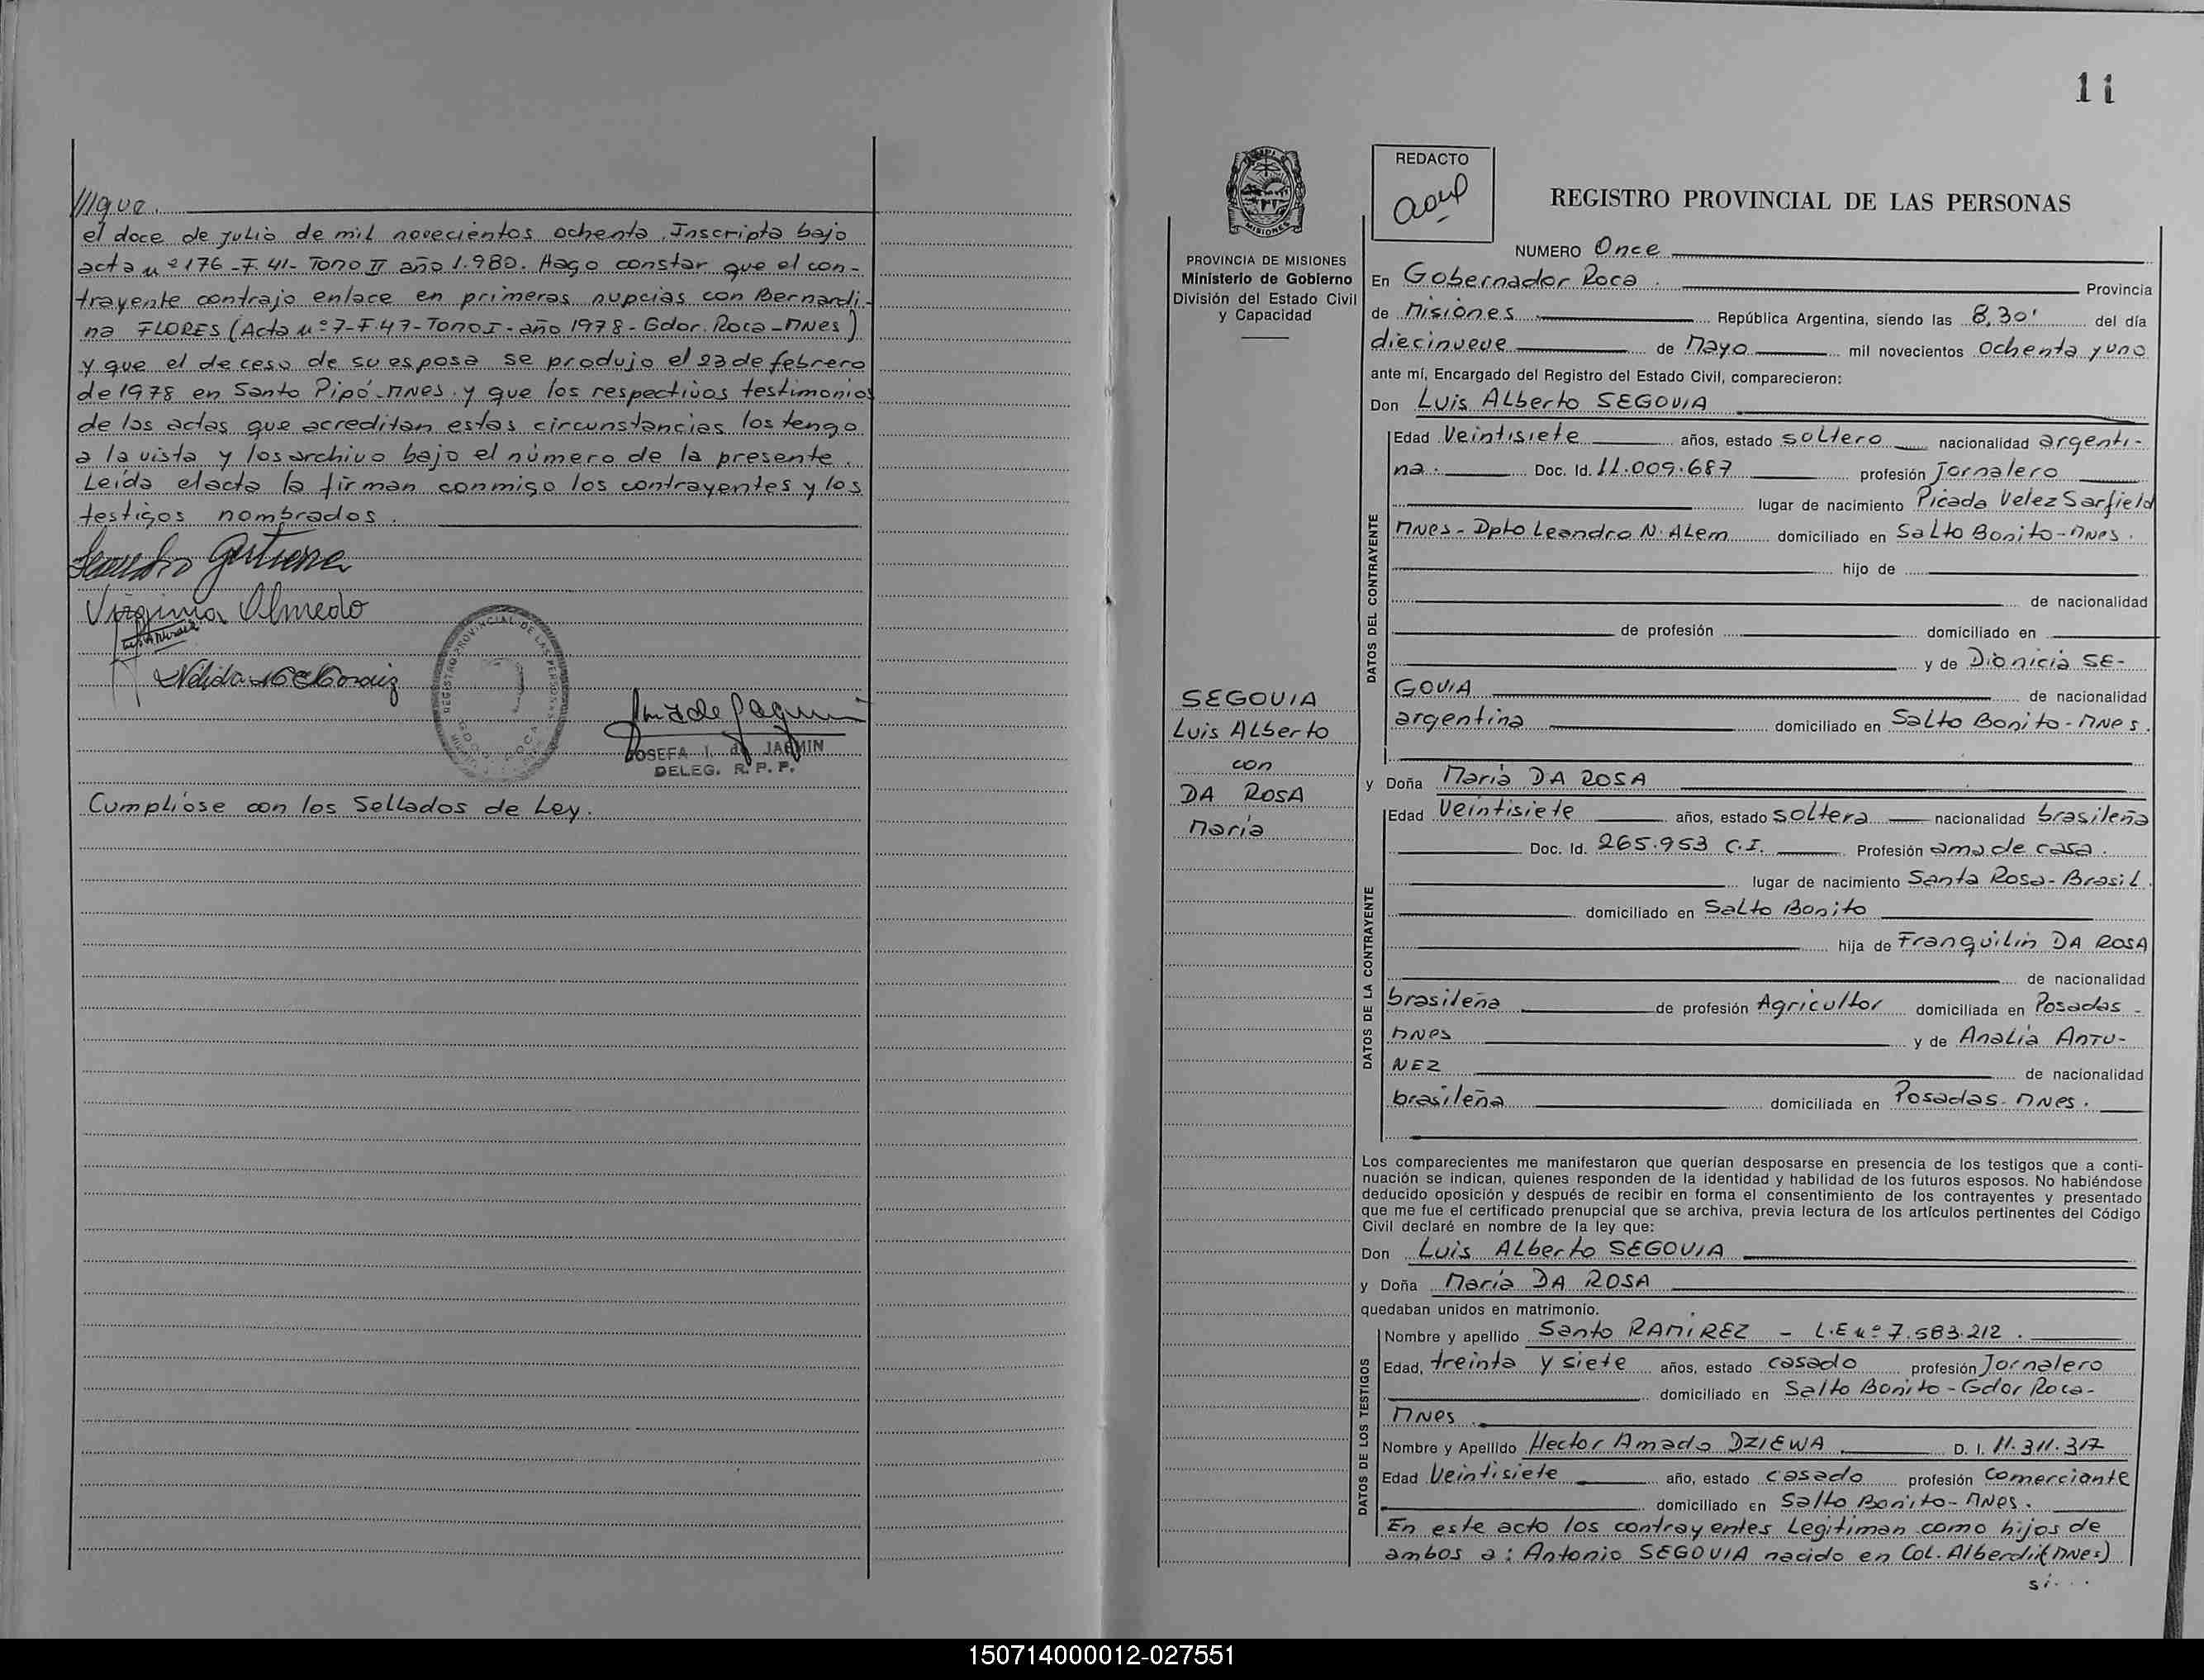 ///que.
el doce de julio de mil novecientos ochenta. Inscripta bajo
acta nº 176-F. 41- Tomo II año 1.980. Hago constar que el con-
trayente contrajo enlace en primeras nupcias con Bernardi-
na FLORES (Acta nº 7-F.47-Tomo I- año 1978- Gdor. Roca-Mnes)
y que el deceso de su esposa se produjo el 23 de febrero
de 1978 en Santo Pipó-Mnes. y que los respectivos testimonios
de las actas que acreditan estas circunstancias los tengo
a la vista y los archivo bajo el número de la presente.
Leída el acta la firman conmigo los contrayentes y los
testigos nombrados.
Virginia Olmedo
JOSEFA I. de JACMIN
DELEG. R. P. P.
Cumplíose con los Sellados de Ley.
11
REDACTO
REGISTRO PROVINCIAL DE LAS PERSONAS
MISIONES
PROVINCIA DE MISIONES
Ministerio de Gobierno
División del Estado Civil
y Capacidad
SEGOVIA
Luis Alberto
con
DA ROSA
María
NUMERO Once
En Gobernador Roca. Provincia
de Misiones República Argentina, siendo las 8,30' del día
diecinueve de Mayo mil novecientos ochenta y uno
ante mí, Encargado del Registro del Estado Civil, comparecieron:
Don Luis Alberto SEGOVIA
DATOS DEL CONTRAYENTE
Edad Veintisiete años, estado soltero nacionalidad argenti-
na. Doc. Id. 11.009.687 profesión Jornalero
lugar de nacimiento Picada Velez Sarfield
Mnes- Dpto Leandro N. Alem domiciliado en Salto Bonito-Mnes.
hijo de
de nacionalidad
de profesión domiciliado en
y de Dionicia SE-
GOVIA de nacionalidad
argentina domiciliado en Salto Bonito-Mnes.
y Doña María DA ROSA
DATOS DE LA CONTRAYENTE
Edad Veintisiete años, estado soltera nacionalidad brasileña
Doc. Id. 265.953 C.I. Profesión ama de casa.
lugar de nacimiento Santa Rosa-Brasil.
domiciliado en Salto Bonito
hija de Franquilin DA ROSA
de nacionalidad
brasileña de profesión Agricultor domiciliada en Posadas-
Mnes y de Analía ANTU-
NEZ de nacionalidad
brasileña domiciliada en Posadas-Mnes.
Los comparecientes me manifestaron que querían desposarse en presencia de los testigos que a conti-
nuación se indican, quienes responden de la identidad y habilidad de los futuros esposos. No habiéndose
deducido oposición y después de recibir en forma el consentimiento de los contrayentes y presentado
que me fue el certificado prenupcial que se archiva, previa lectura de los artículos pertinentes del Código
Civil declaré en nombre de la ley que:
Don Luis Alberto SEGOVIA
y Doña María DA ROSA
quedaban unidos en matrimonio.
DATOS DE LOS TESTIGOS
Nombre y apellido Santo RAMIREZ - L.E nº 7.583.212.
Edad, treinta y siete años, estado casado profesión Jornalero
domiciliado en Salto Bonito-Gdor Roca-
Mnes.
Nombre y Apellido Hector Amado DZIEWA D. I. 11.311.317
Edad Veintisiete año, estado casado profesión Comerciante
domiciliado en Salto Bonito-Mnes.
En este acto los contrayentes Legitiman como hijos de
ambos a: Antonio SEGOVIA nacido en Col. Alberdi (Mnes)
si...
150714000012-027551